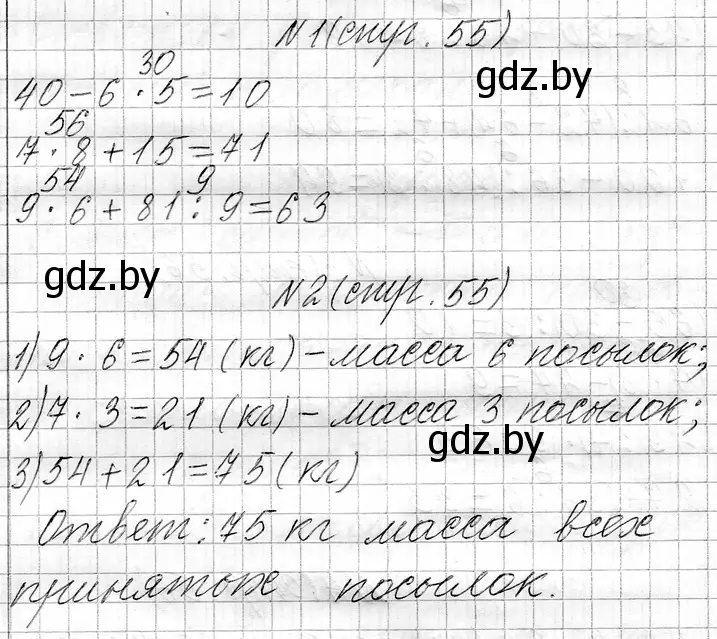 N1(стр. 55)
gdz.by
30
40 - 6 · 5 = 10
56
7 · 8 + 15 = 71
54 9
9 · 6 + 81 : 9 = 63
gdz.by
N2(стр. 55)
1) 9 · 6 = 54 (кг) - масса 6 посылок;
2) 7 · 3 = 21 (кг) - масса 3 посылок;
gdz.by
3) 54 + 21 = 75 (кг)
Ответ: 75 кг масса всех
принятых посылок.